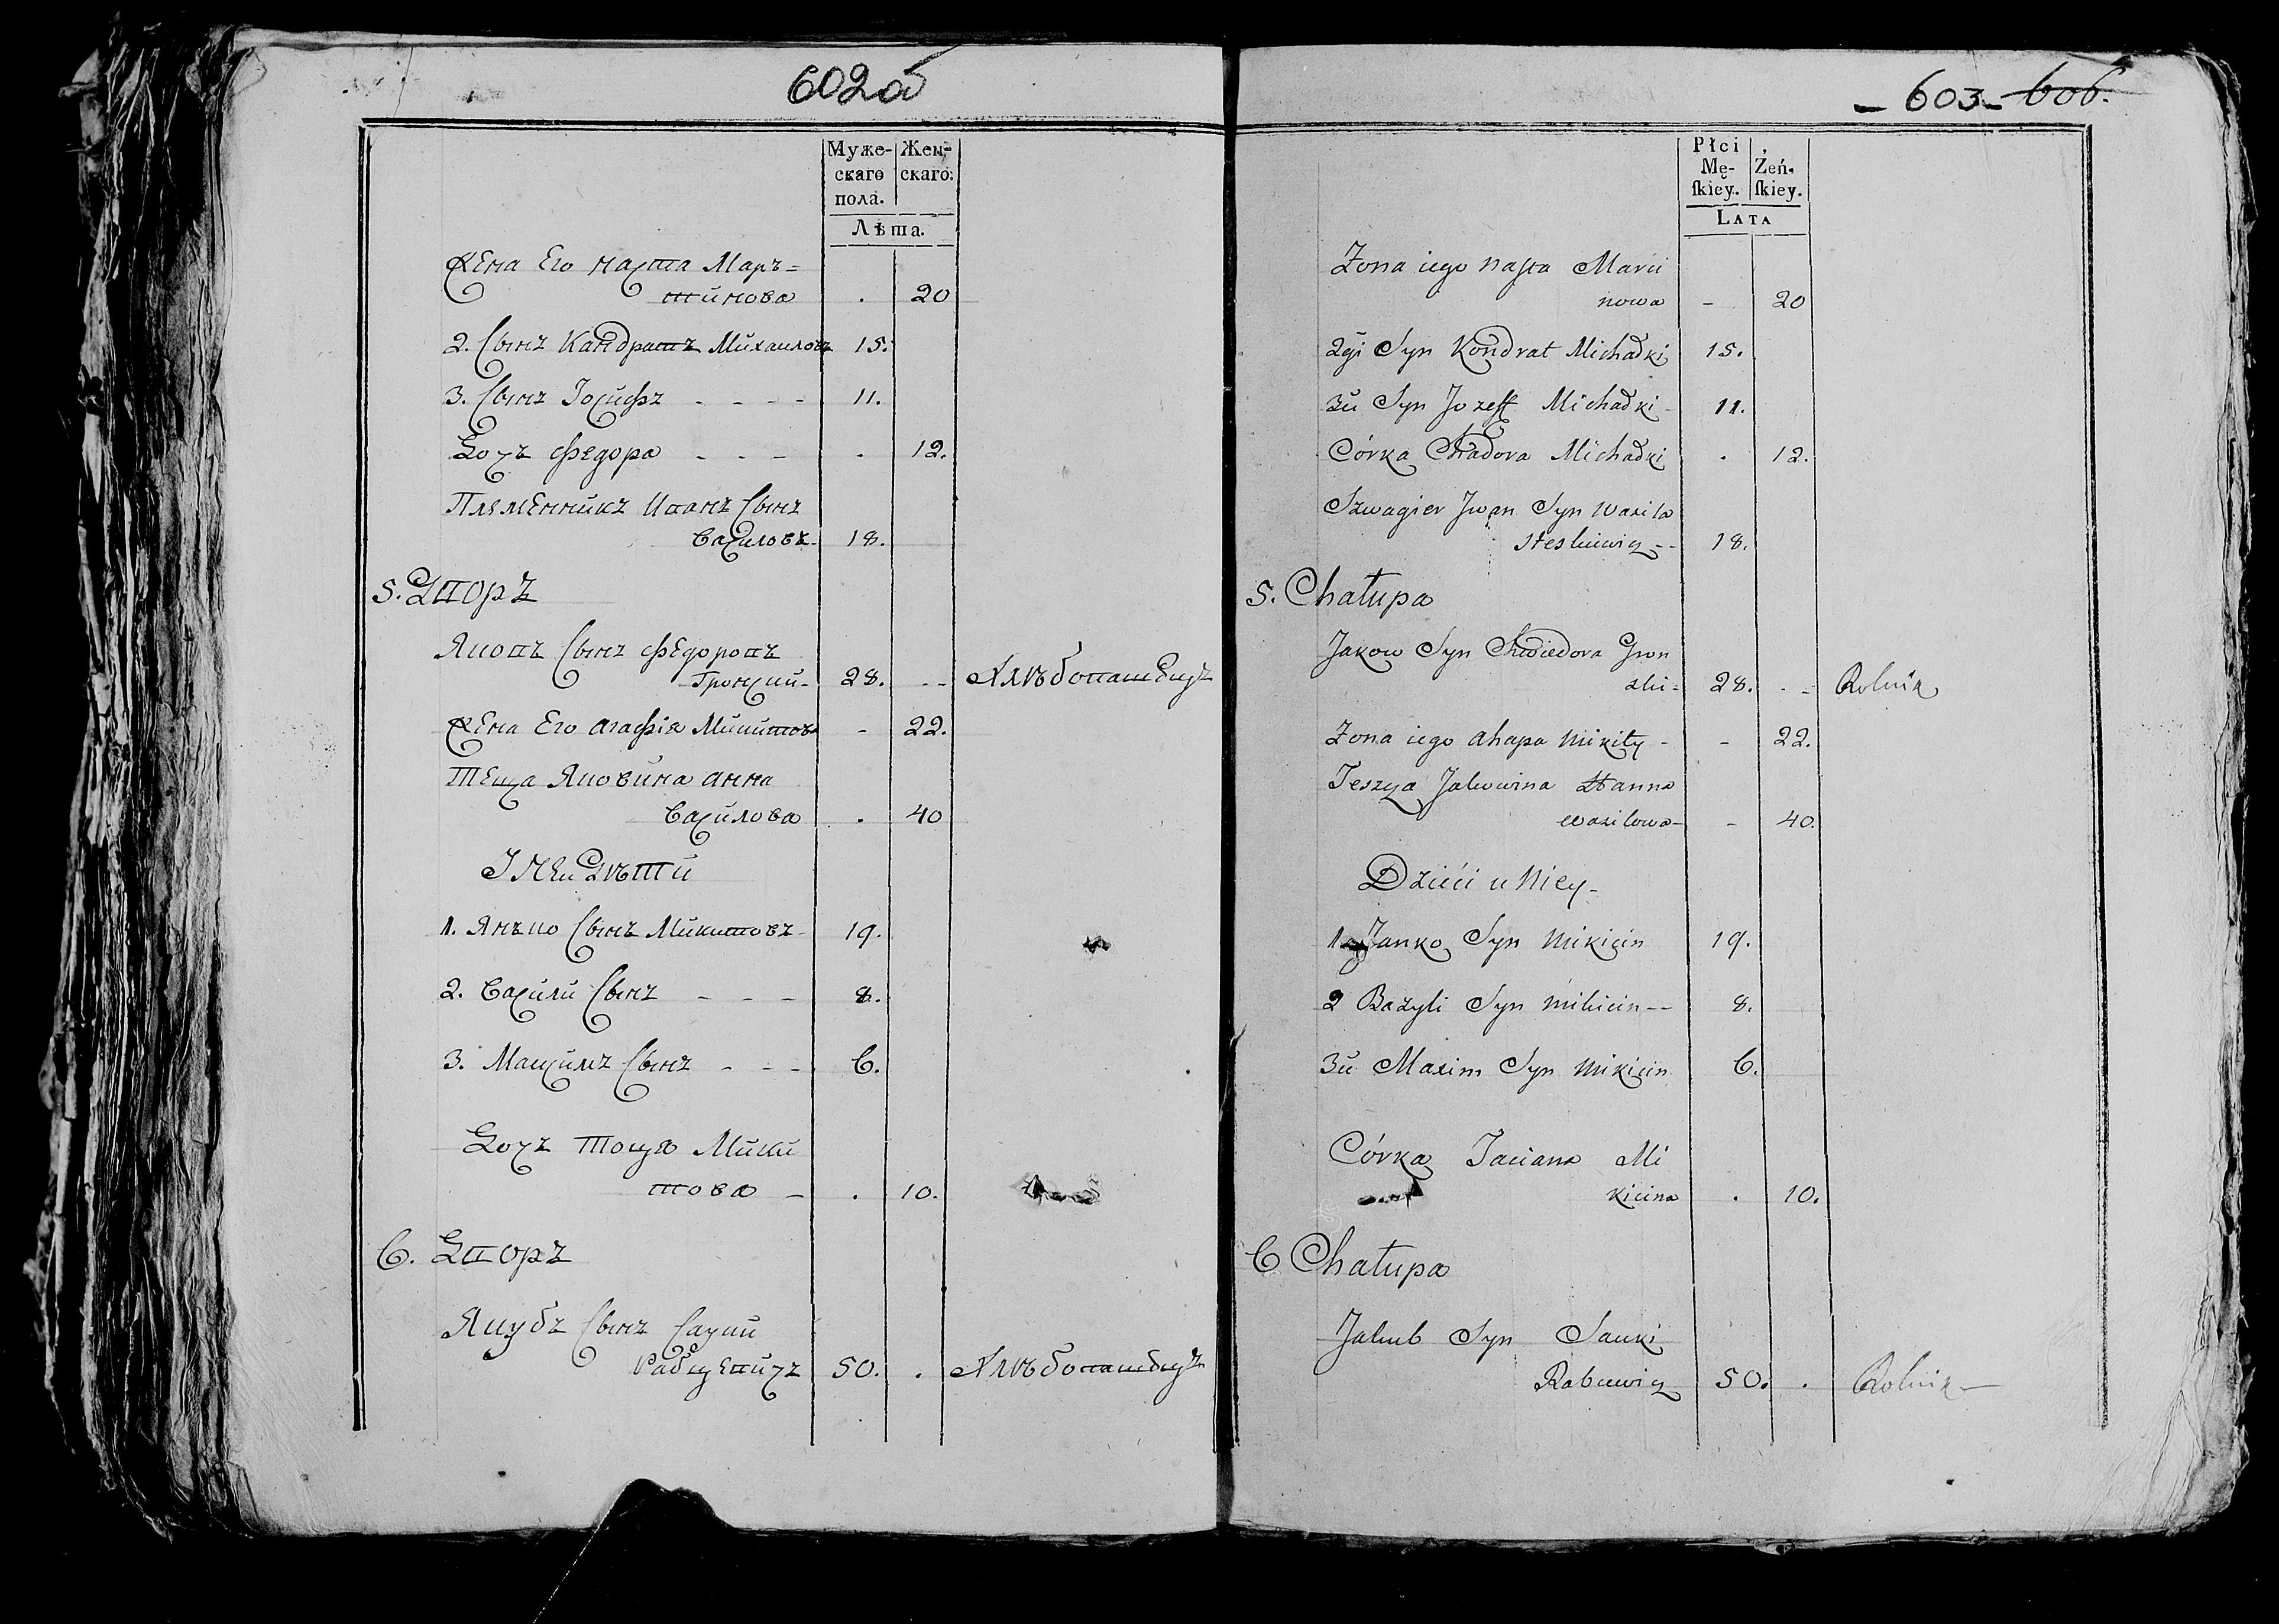 602об
Муже-
скаго
пола.
Жен-
скаго.
Лѣта.
Жена Его Наста Мар=
тинова . 20
2. Сынъ Кандратъ Михаиловъ 15.
3. Сынъ Іосифъ - - - - 11.
Дочъ Федора - - - . 12.
Племенникъ Иванъ Сынъ
Василовъ - 18.
5. Дворъ
Яковъ Сынъ Федоровъ
Гронский - 28. -- Хлѣбопашецъ
Жена Его Агафія Микитова - 22.
Теща Яковина Анна
Василова . 40
У Ней Дѣти
1. Янъко Сынъ Микитовъ - 19.
2. Васили Сынъ - - - 8.
3. Максимъ Сынъ - - - 6.
Дочъ Тоця Мики
това - . 10.
6. Дворъ
Якубъ Сынъ Сауки
Рабцевичъ 50. . Хлѣбопашецъ
- 603 - 606.
Płci
Mę-
ſkiey.
Żeń-
ſkiey.
Lata
Zona iego Nasta Marci
nowa - 20
2gi Syn Kondrat Michałki 15.
3ci Syn Jozeff Michałki - 11.
Córka Chadora Michałki . 12.
Szwagier Jwan Syn Wasila
18.
5. Chałupa
Jakow Syn Chwiedora Gron
ski = 28. . - Rolnik
Zona iego Ahapa Mikity - - 22.
Teszcza Jakowina Hanna
Wasilowa - - 40.
Dzieci u Niey -
1. Janko Syn Mikicin 19.
2 Bazyli Syn Mikicin -- 8.
3ci Maxim Syn Mikicin 6.
Córka Taciana Mi
kicina . 10.
6 Chałupa
Jakub Syn Sauki
Rabcewicz 50. . Rolnik -